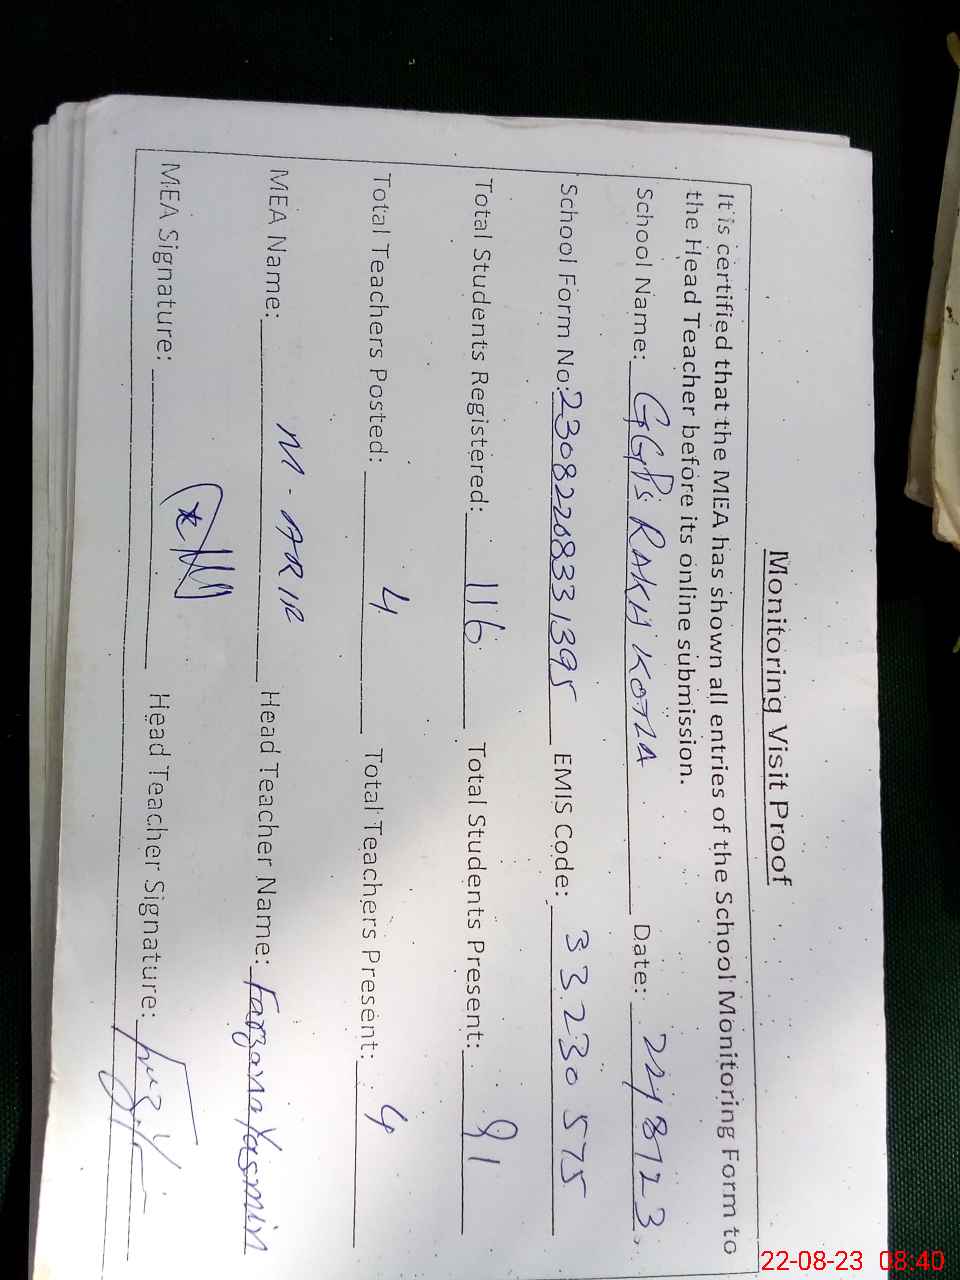 Monitoring Visit Proof
It is certified that the MEA has shown all entries of the School Monitoring Form to
the Head Teacher before its online submission.
School Name: GGPS RAKH KOTLA Date: 22/8/23
School Form No: 23082208331395 EMIS Code: 33230575
Total Students Registered: 116 Total Students Present: 91
Total Teachers Posted: 4 Total Teachers Present: 4
MEA Name: M. Head Teacher Name: Farzana Yasmin
MEA Signature: Head Teacher Signature:
22-08-23 08:40